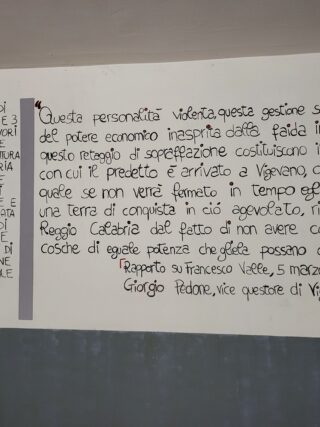 DI
E 3
VORI
E
TTURA
RIA
E
E E
ATA
DI
E,
DI
NE
LE
"Questa personalità violenta, questa gestione s
del potere economico inasprita dalla faida in
questo retaggio di sopraffazione costituiscono i
con cui il predetto è arrivato a Vigevano, c
quale se non verrà fermato in tempo eff
una terra di conquista in ciò agevolato, ri
Reggio Calabria dal fatto di non avere co
cosche di eguale potenza che gliela possano c
Rapporto su Francesco Valle, 5 marzo
Giorgio Pedone, vice questore di Vi